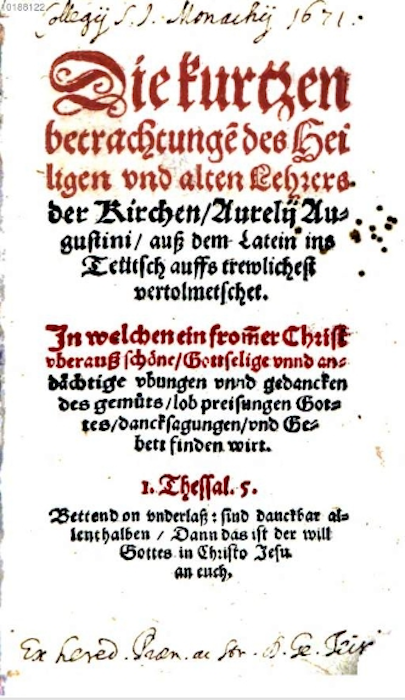 10188122
Collegij S. J. Monachij 1671.
Die kurtzen
betrachtungẽ des Hei
ligen vnd alten Lehrers
der Kirchen/Aurelij Au-
gustini/ auß dem Latein ins
Teütsch auffs trewlichest
vertolmetschet.
In welchen ein from̃er Christ
vberauß schöne/Gottselige vnnd an-
dächtige vbungen vnnd gedancken
des gemüts/lob preisungen Got-
tes/dancksagungen/vnd Ge-
bett finden wirt.
1. Thessal. 5.
Bettend on vnderlaß: sind danckbar al-
lenthalben / Dann das ist der will
Gottes in Christo Jesu
an euch.
Ex hered. Præn. ac Str. D. Ge.